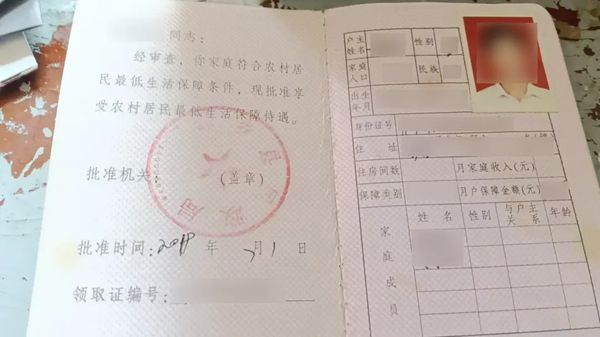 同志:
经审查,你家庭符合农村居
民最低生活保障条件,现批准享
受农村居民最低生活保障待遇。
批准机关:
(盖章)
批准时间: 年 月1日
领取证编号:
户主姓名
性别
家庭人口
民族
出生年月
身份证号
住 址
住房间数
月家庭收入(元)
保障类别
月户保障金额(元)
家庭成员
姓 名
性别
与户主关 系
年龄